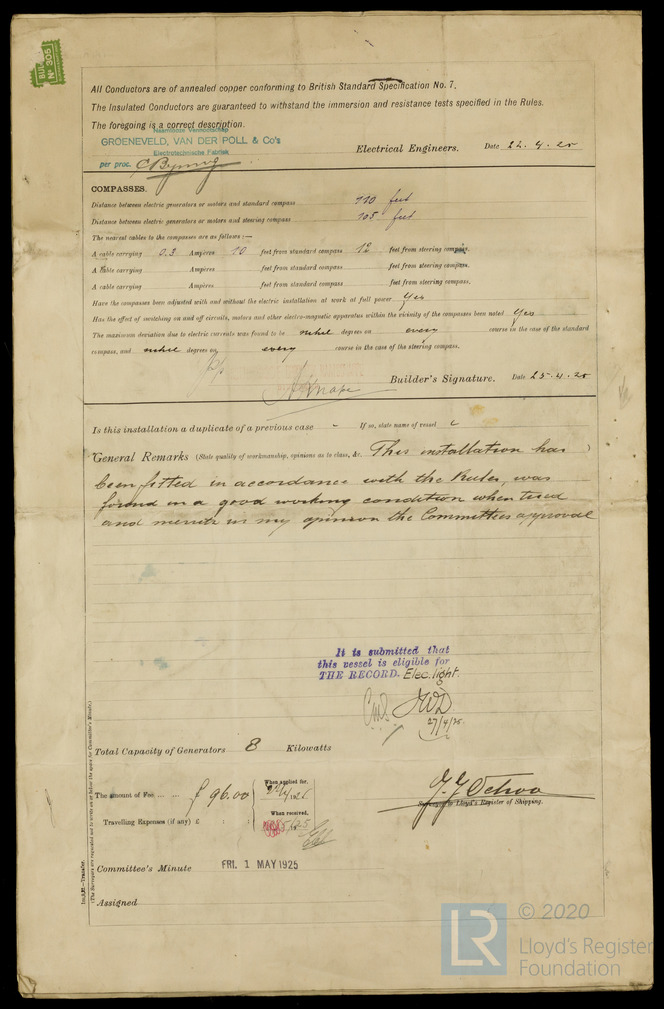 BUL
No 305
All Conductors are of annealed copper conforming to British Standard Specification No. 7.
The Insulated Conductors are guaranteed to withstand the immersion and resistance tests specified in the Rules.
The foregoing is a correct description.
Naamlooze Vennootschap
GROENEVELD, VAN DER POLL & Co's
Electrotechnische Fabriek
per proc. Electrical Engineers. Date 22.4.25
COMPASSES.
Distance between electric generators or motors and standard compass 110 feet
Distance between electric generators or motors and steering compass 105 feet
The nearest cables to the compasses are as follows:—
A cable carrying 0.3 Ampères 10 feet from standard compass 12 feet from steering compass.
A cable carrying Ampères feet from standard compass feet from steering compass.
A cable carrying Ampères feet from standard compass feet from steering compass.
Have the compasses been adjusted with and without the electric installation at work at full power Yes
Has the effect of switching on and off circuits, motors and other electro-magnetic apparatus within the vicinity of the compasses been noted Yes
The maximum deviation due to electric currents was found to be degrees on every course in the case of the standard
compass, and degrees on every course in the case of the steering compass.
Builder's Signature. Date 25.4.25
Is this installation a duplicate of a previous case - If so, state name of vessel
General Remarks (State quality of workmanship, opinions as to class, &c. This installation has )
been fitted in accordance with the Rules, was
found in a good working condition when tried
and merits in my opinion the Committees approval
It is submitted that
this vessel is eligible for
THE RECORD. Elec. light.
JWD
27/4/25.
Total Capacity of Generators 8 Kilowatts
The amount of Fee ... ... £ 96.00
When applied for,
Travelling Expenses (if any) £ : :
When received,
Surveyor to Lloyd's Register of Shipping.
Committee's Minute FRI. 1 MAY 1925
Assigned
Im.3,22.—Transfer.
(The Surveyors are requested not to write on or below the space for Committee's Minute.)
LR © 2020
Lloyd's Register
Foundation